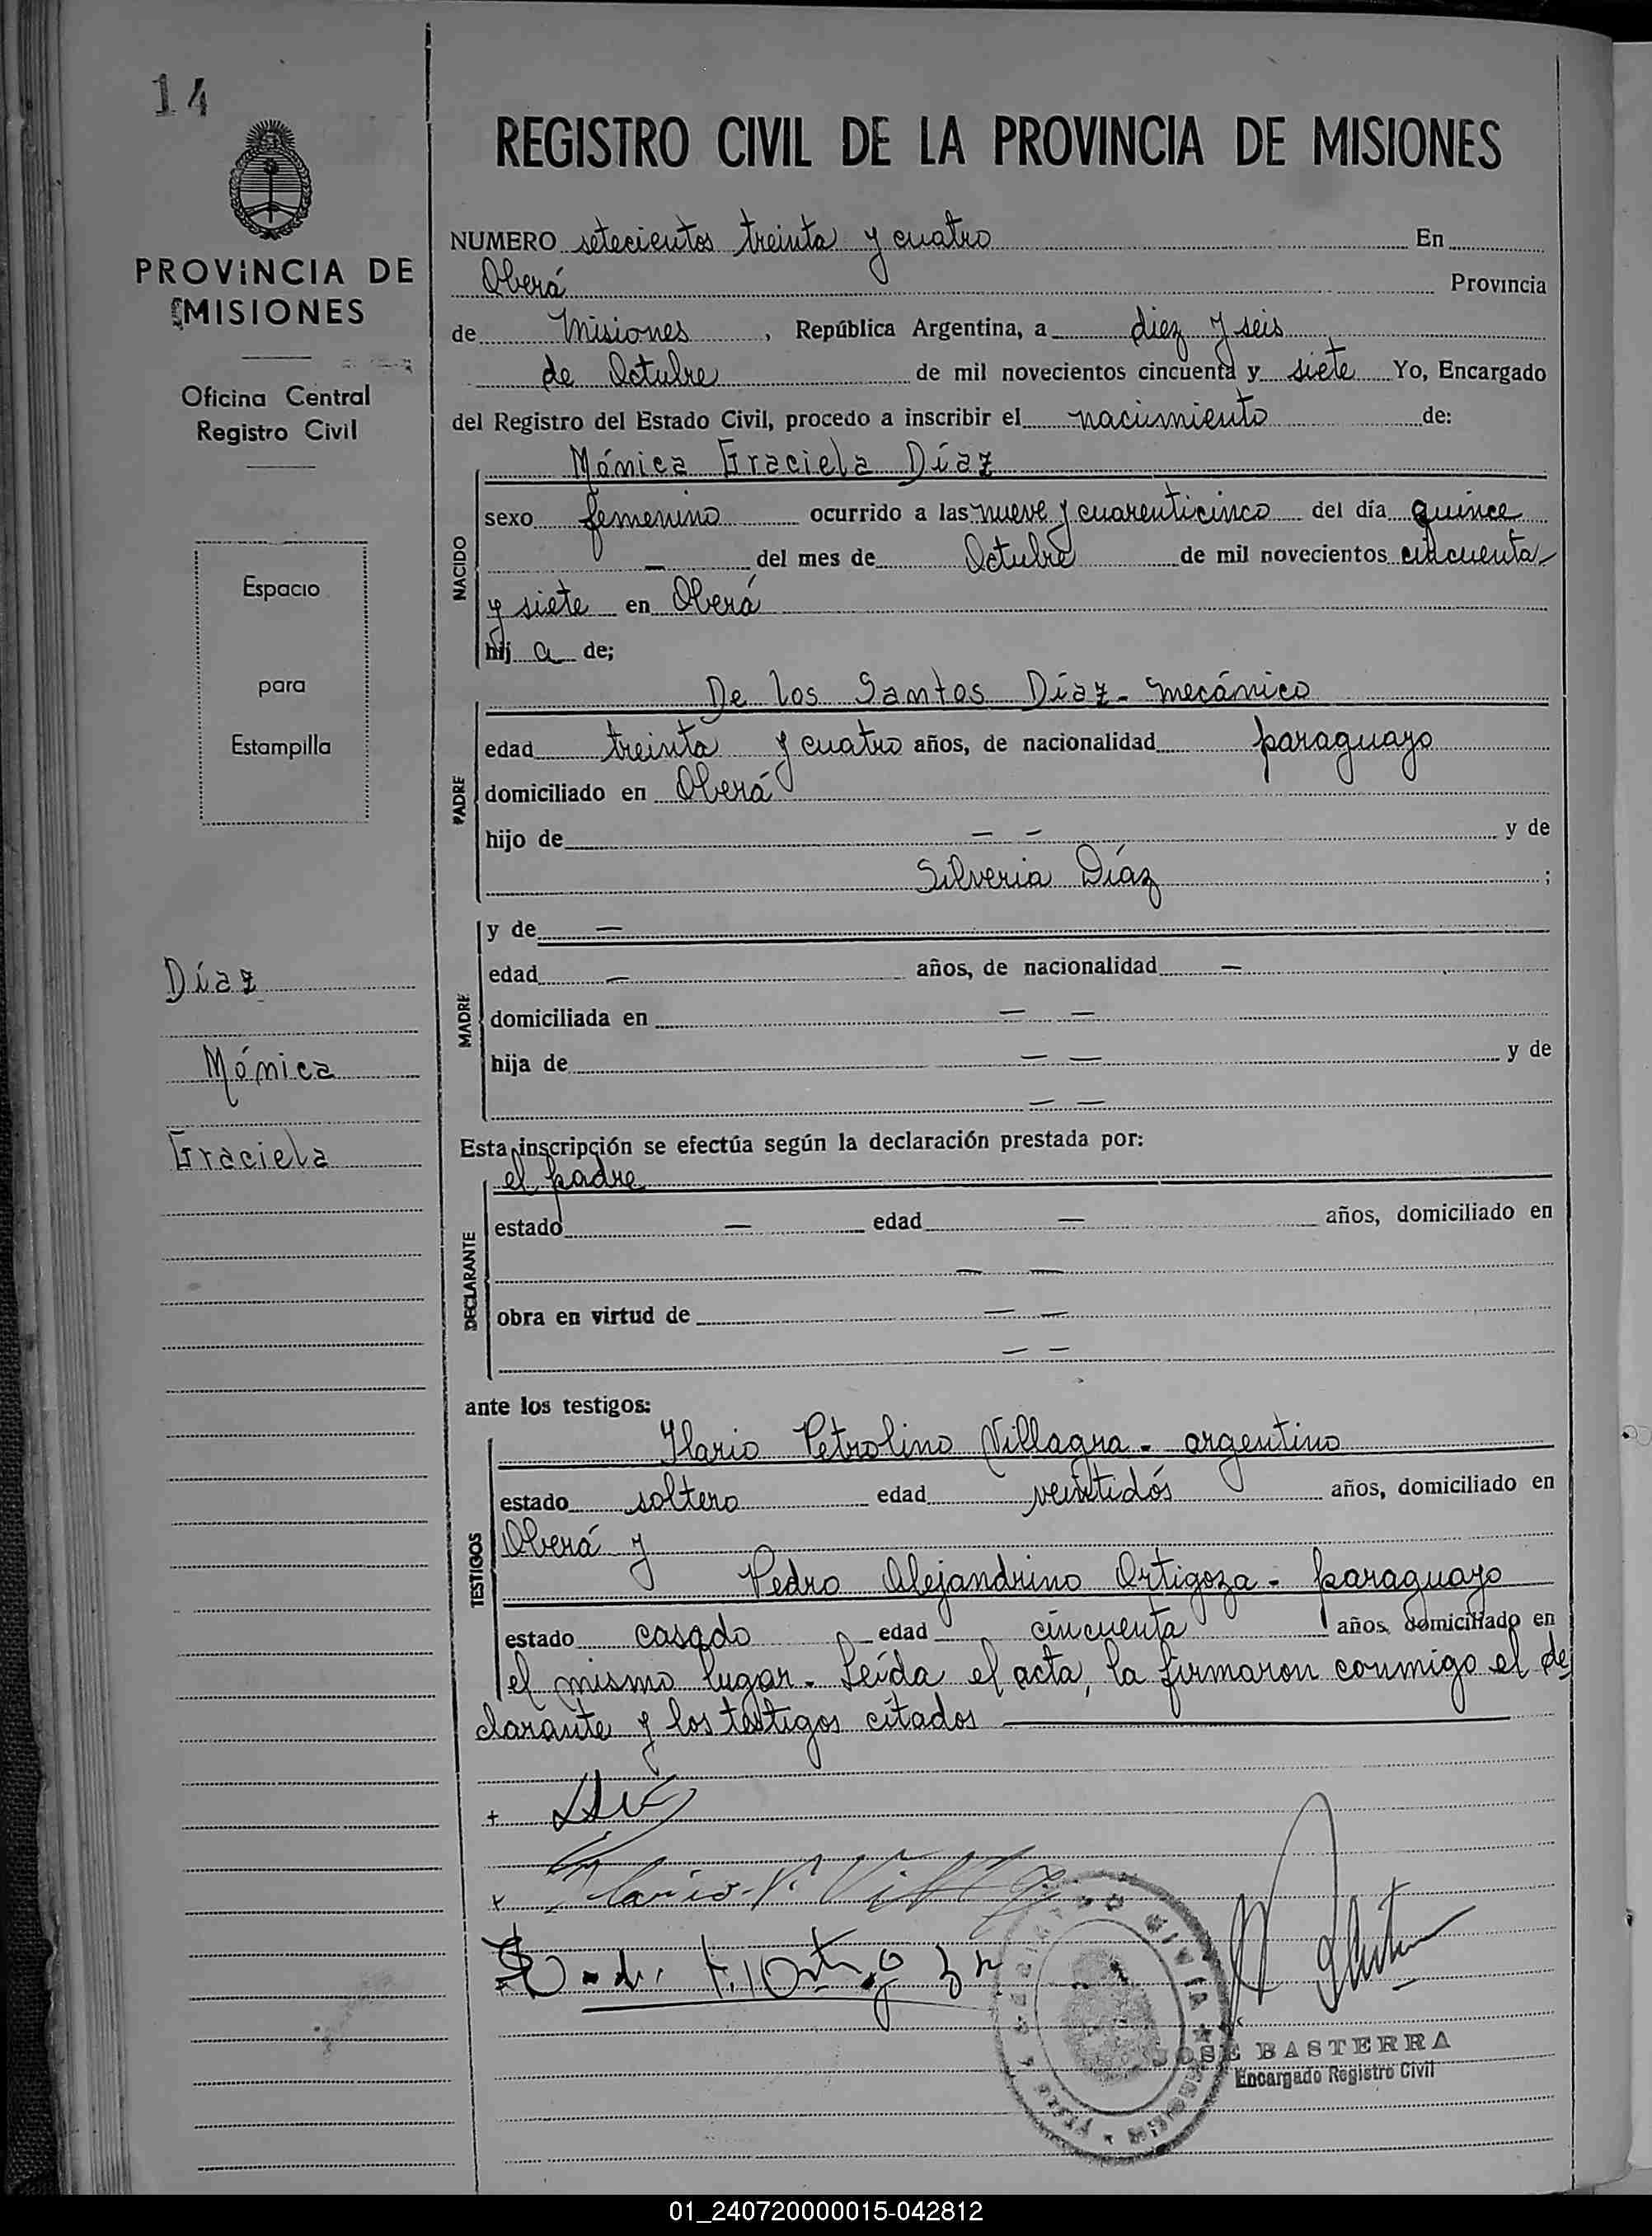 14
PROVINCIA DE
MISIONES
Oficina Central
Registro Civil
Espacio
para
Estampilla
Díaz
Mónica
Graciela
REGISTRO CIVIL DE LA PROVINCIA DE MISIONES
NUMERO setecientos treinta y cuatro En
Oberá Provincia
de Misiones, República Argentina, a diez y seis
de Octubre de mil novecientos cincuenta y siete Yo, Encargado
del Registro del Estado Civil, procedo a inscribir el nacimiento de:
NACIDO
Mónica Graciela Díaz
sexo femenino ocurrido a las nueve y cuarenticinco del día quince
— del mes de Octubre de mil novecientos cincuenta
y siete en Oberá
hij a de;
PADRE
De los Santos Díaz - mecánico
edad treinta y cuatro años, de nacionalidad paraguayo
domiciliado en Oberá
hijo de — — y de
Silveria Díaz ;
MADRE
y de —
edad — años, de nacionalidad —
domiciliada en — —
hija de — — y de
— —
Esta inscripción se efectúa según la declaración prestada por:
DECLARANTE
el padre
estado — edad — años, domiciliado en
— —
obra en virtud de — —
— —
ante los testigos:
TESTIGOS
Ilario Petrolino Villagra - argentino
estado soltero edad veintidós años, domiciliado en
Oberá y
Pedro Alejandrino Ortigoza - paraguayo
estado casado edad cincuenta años, domiciliado en
el mismo lugar. Leída el acta, la firmaron conmigo el de
clarante y los testigos citados
JOSE BASTERRA
Encargado Registro Civil
01_240720000015-042812